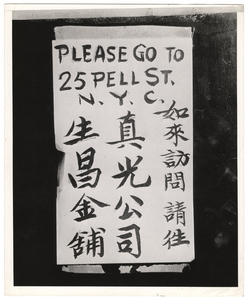 PLEASE GO TO
25 PELL ST.
N.Y.C.
如來訪問請徃
真光公司
生昌金舖